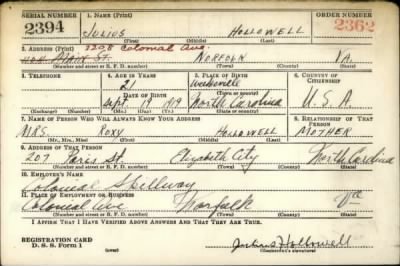 SERIAL NUMBER 1. NAME (Print) ORDER NUMBER
2394 JULIUS HOLLOWELL 2362
(First) (Middle) (Last)
2. ADDRESS (Print) 1208 Colonial Ave.
MAIN ST. NORFOLK VA.
(Number and street or R. F. D. number) (Town) (County) (State)
3. TELEPHONE 4. AGE IN YEARS 5. PLACE OF BIRTH 6. COUNTRY OF CITIZENSHIP
21
DATE OF BIRTH (Town or county)
Sept. 19 1919 North Carolina U.S.A.
(Exchange) (Number) (Mo.) (Day) (Yr.) (State or country)
7. NAME OF PERSON WHO WILL ALWAYS KNOW YOUR ADDRESS 8. RELATIONSHIP OF THAT PERSON
MRS. ROXY HOLLOWELL MOTHER
(Mr., Mrs., Miss) (First) (Middle) (Last)
9. ADDRESS OF THAT PERSON
207 Paris St. Elizabeth City North Carolina
(Number and street or R. F. D. number) (Town) (County) (State)
10. EMPLOYER'S NAME
Colonial Spillway
11. PLACE OF EMPLOYMENT OR BUSINESS
Colonial Ave Norfolk Va
(Number and street or R. F. D. number) (Town) (County) (State)
I AFFIRM THAT I HAVE VERIFIED ABOVE ANSWERS AND THAT THEY ARE TRUE.
REGISTRATION CARD
D. S. S. Form 1 Julius Hollowell
(Registrant's signature)